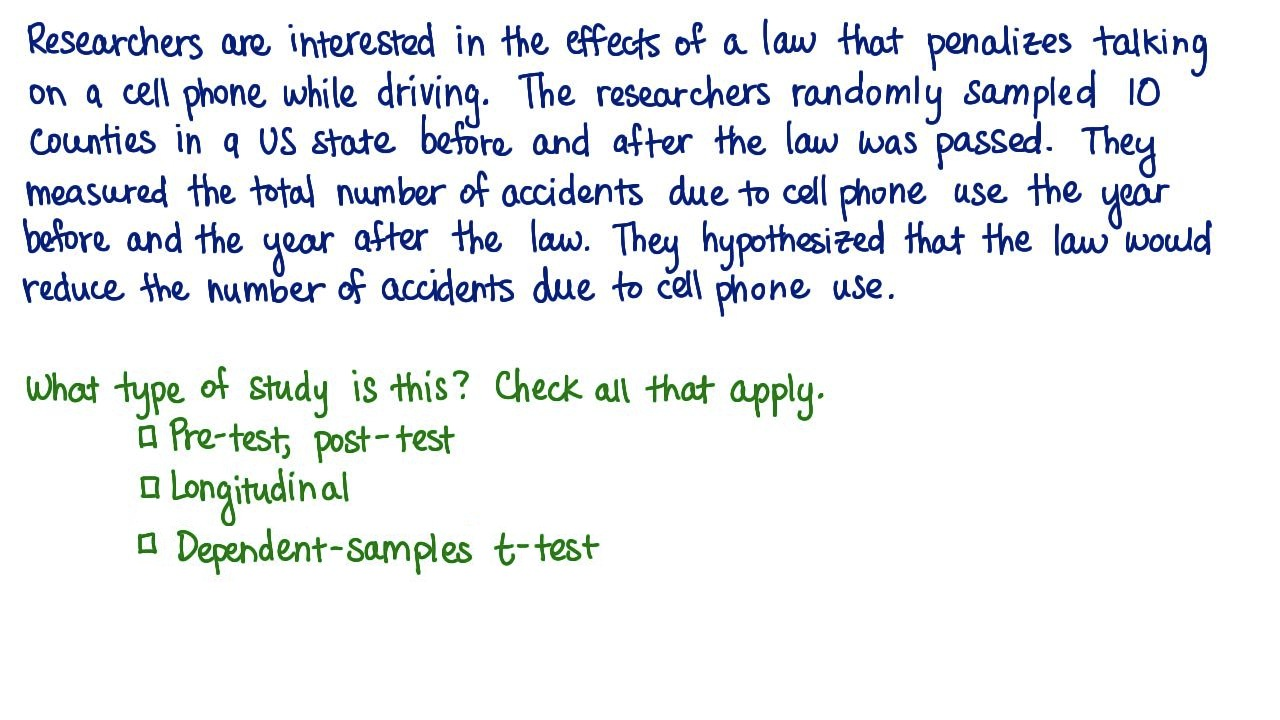 Researchers are interested in the effects of a law that penalizes talking
on a cell phone while driving. The researchers randomly sampled 10
counties in a US state before and after the law was passed. They
measured the total number of accidents due to cell phone use the year
before and the year after the law. They hypothesized that the law would
reduce the number of accidents due to cell phone use.
What type of study is this? Check all that apply.
Pre-test; post-test
Longitudinal
Dependent-samples t-test